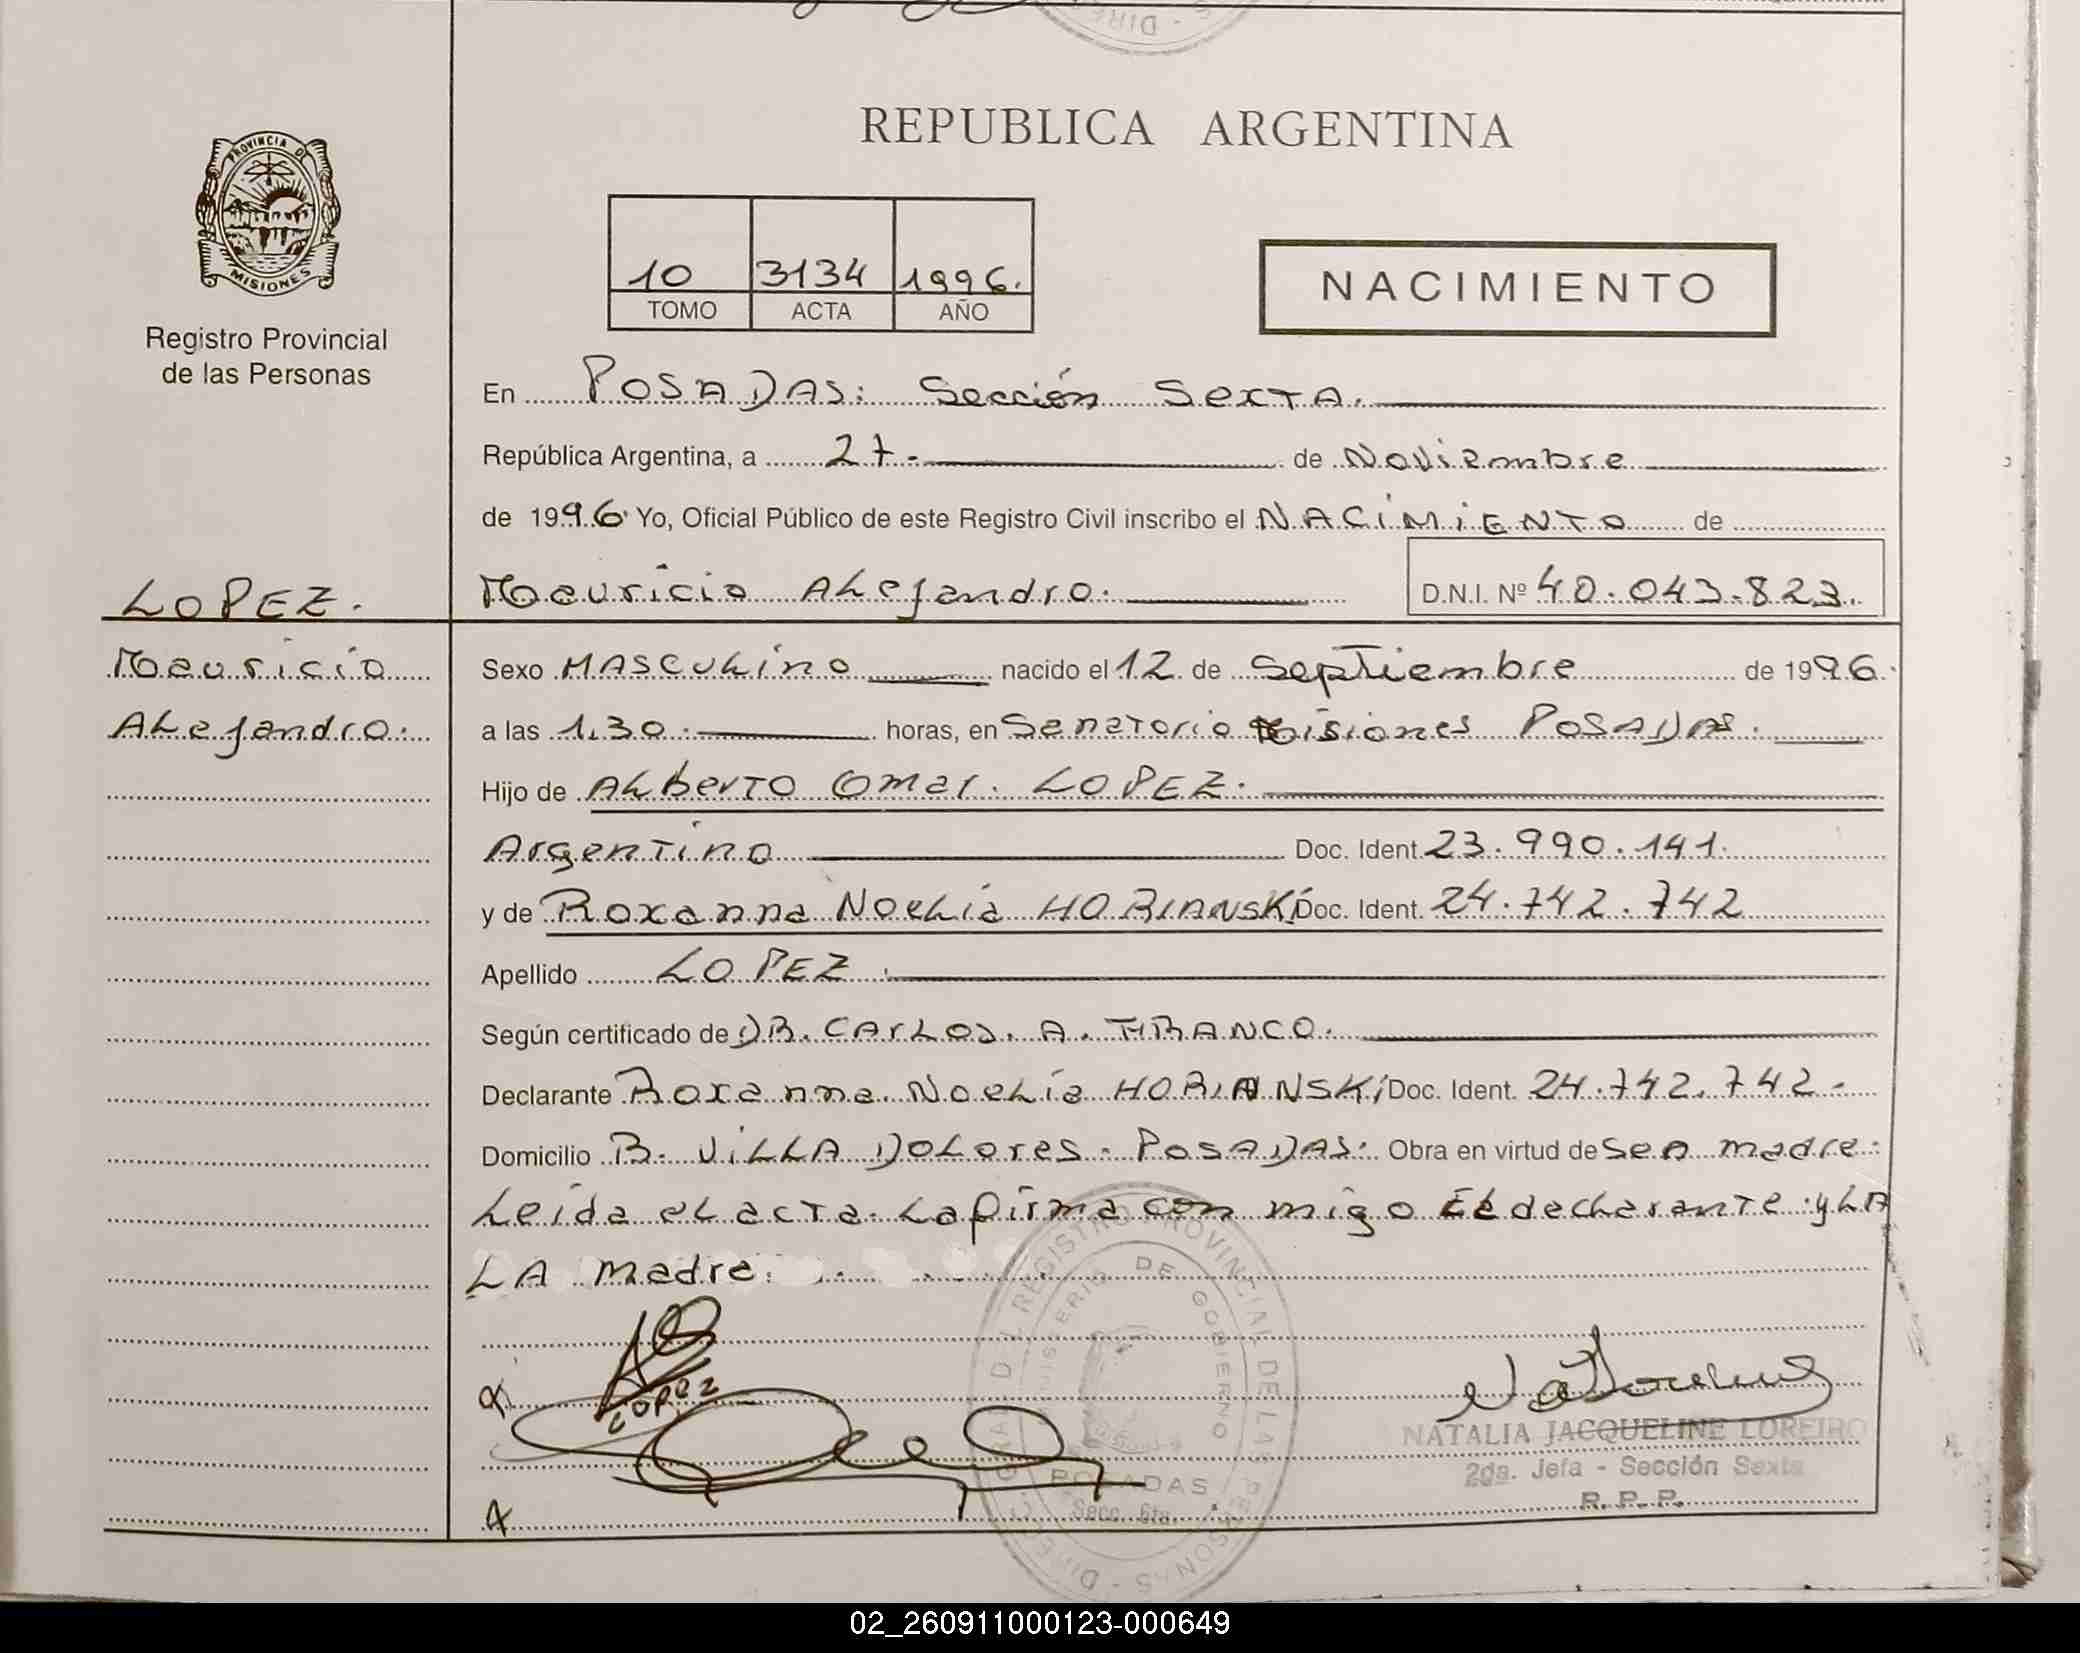 REPUBLICA ARGENTINA
PROVINCIA DE
MISIONES
Registro Provincial
de las Personas
10 3134 1996.
TOMO ACTA AÑO
NACIMIENTO
En POSADAS: Sección SEXTA.
República Argentina, a 27. de Noviembre
de 1996 Yo, Oficial Público de este Registro Civil inscribo el NACIMIENTO de
LOPEZ.
Mauricio Alejandro. D.N.I. Nº 40.043.823.
Mauricio
Alejandro.
Sexo MASCULino nacido el 12 de Septiembre de 1996.
a las 1.30. horas, en Sanatorio Misiones POSADAS.
Hijo de Alberto Omar. LOPEZ.
Argentino Doc. Ident. 23.990.141.
y de Roxanna Noelia HORIANSKi Doc. Ident. 24.742.742
Apellido LOPEZ.
Según certificado de DR. CARLOS. A. FRANCO.
Declarante Roxanna Noelia HORIANSKi Doc. Ident. 24.742.742.
Domicilio B. ViLLA DOLores. POSADAS. Obra en virtud de Ser madre.
Leida el acta. La firma con migo El declarante y LA
LA madre.
LOPEZ
DIRECC. GRAL. DEL REGISTRO PROVINCIAL DE LAS PERSONAS
MINISTERIO DE GOBIERNO
POSADAS
Secc. 6ta.
NATALIA JACQUELINE LOREIRO
2da. Jefa - Sección Sexta
R. P. P.
02_260911000123-000649